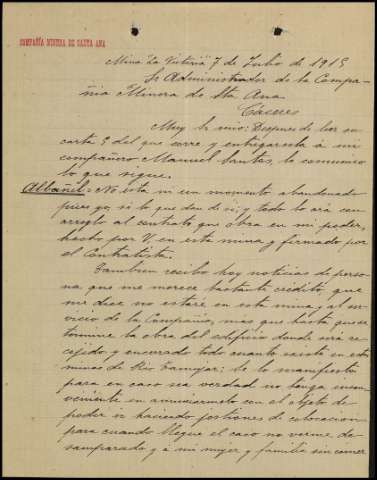 COMPAÑIA MINERA DE SANTA ANA
Mina "La Victoria" 7 de Julio de 1915
Sr Administrador de la Compa-
ñia Minera de Sta Ana
Cáceres
Muy Sr mio: Despues de leer su
carta 5 del que corre y entregarsela á mi
compañero Manuel Santos, le comunico
lo que sigue.
Albañil = No esta ni un momento abandonado
pues yo, sé lo que dan de si; y todo lo ará con
arreglo al contrato que obra en mi poder,
hecho por V, en esta mina y firmado por
el Contratista.
Tambien recibo hoy noticias de perso-
na que me merece bastante crédito, que
me dice no estaré en esta mina y al ser-
vicio de la Compañia, mas que hasta que se
termine la obra del edificio donde será re-
cojido y encerrado todo cuanto exista en estas
minas de : Se lo manifiesto
para en caso sea verdad no tenga incon-
veniente en anunciarmelo con el objeto de
poder ir haciendo jestiones de colocacion
para cuando llegue el caso no verme de-
samparado y á mi mujer y familia sin comer